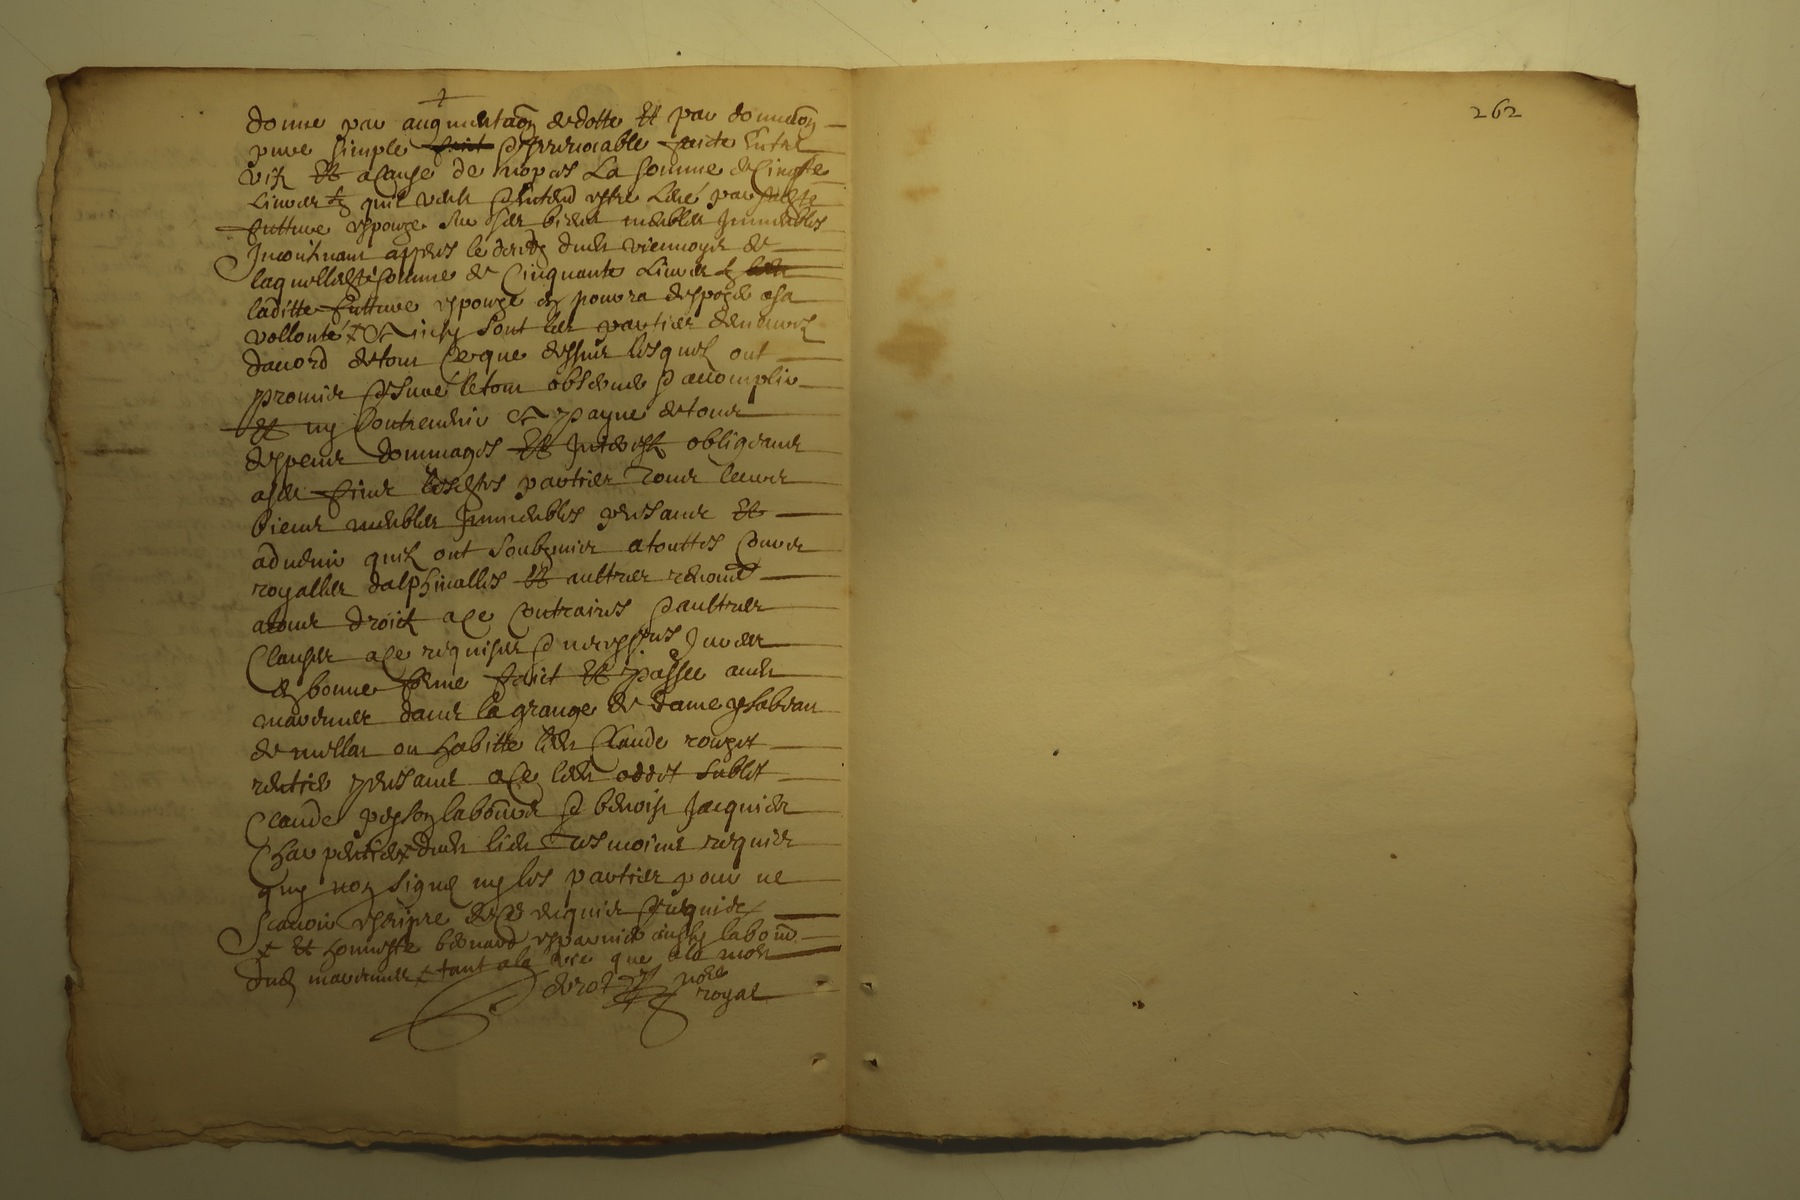 donne par augmentaõn de dotte Et par donnaõn
pure simple et Irrevocable faicte Entre
vifz Et a cause de nopces La somme de Cinqte
Livres tz quil veult Et entend estre Levé par
futture espouze sur ses biens meubles Immeubles
Incontinant appres le deces dud viennoys de
laquelle dte somme de Cinquante Livres tz
laditte futture espouze en pourra dispozer a sa
vollonté Et Ainsy sont les parties demeurés
dacord de tout Ce que dessus lesquelz ont
promis et juré le tout observer et accomplir
Et ny Contrevenir A payne de tous
despens dommages Et Interestz obligeans
a ses fins lesdtes parties tous leurs
biens meubles Immeubles presans Et
advenir quilz ont soubzmis a touttes Cours
royalles dalphinalles Et aultres renoncé
a tous droictz a ce Contraires et aultres
Clauses a ce requises et necessres Jurees
en bonne forme faict Et passé aud
marennes dans la grange de dame ysabeau
de mellar ou habitte led Claude rouget
rentier presans a ce led oddet sublet
Claude peyson laboureur et benoist Jacquier
Charpentier dud lieu Tesmoins requis
quy non signé ny les parties pour ne
scavoir escripre de ce enquis et requis
x Et honneste bernard esparnier aussy labour
dud marennes x tant a la vie que a la mort
nore
royal
262